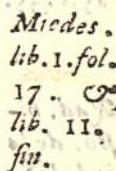 Miedes.
lib.1.fol.
17. &
lib. 11.
fin.